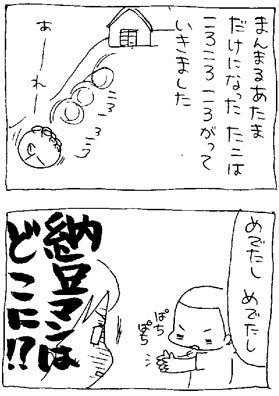 まんまるあたま
だけになった たこは
ころころ ころがって
いきました
ころころ
あーれー
めでたし めでたし
ぱち
ぱち
納豆マンは
どこに!?